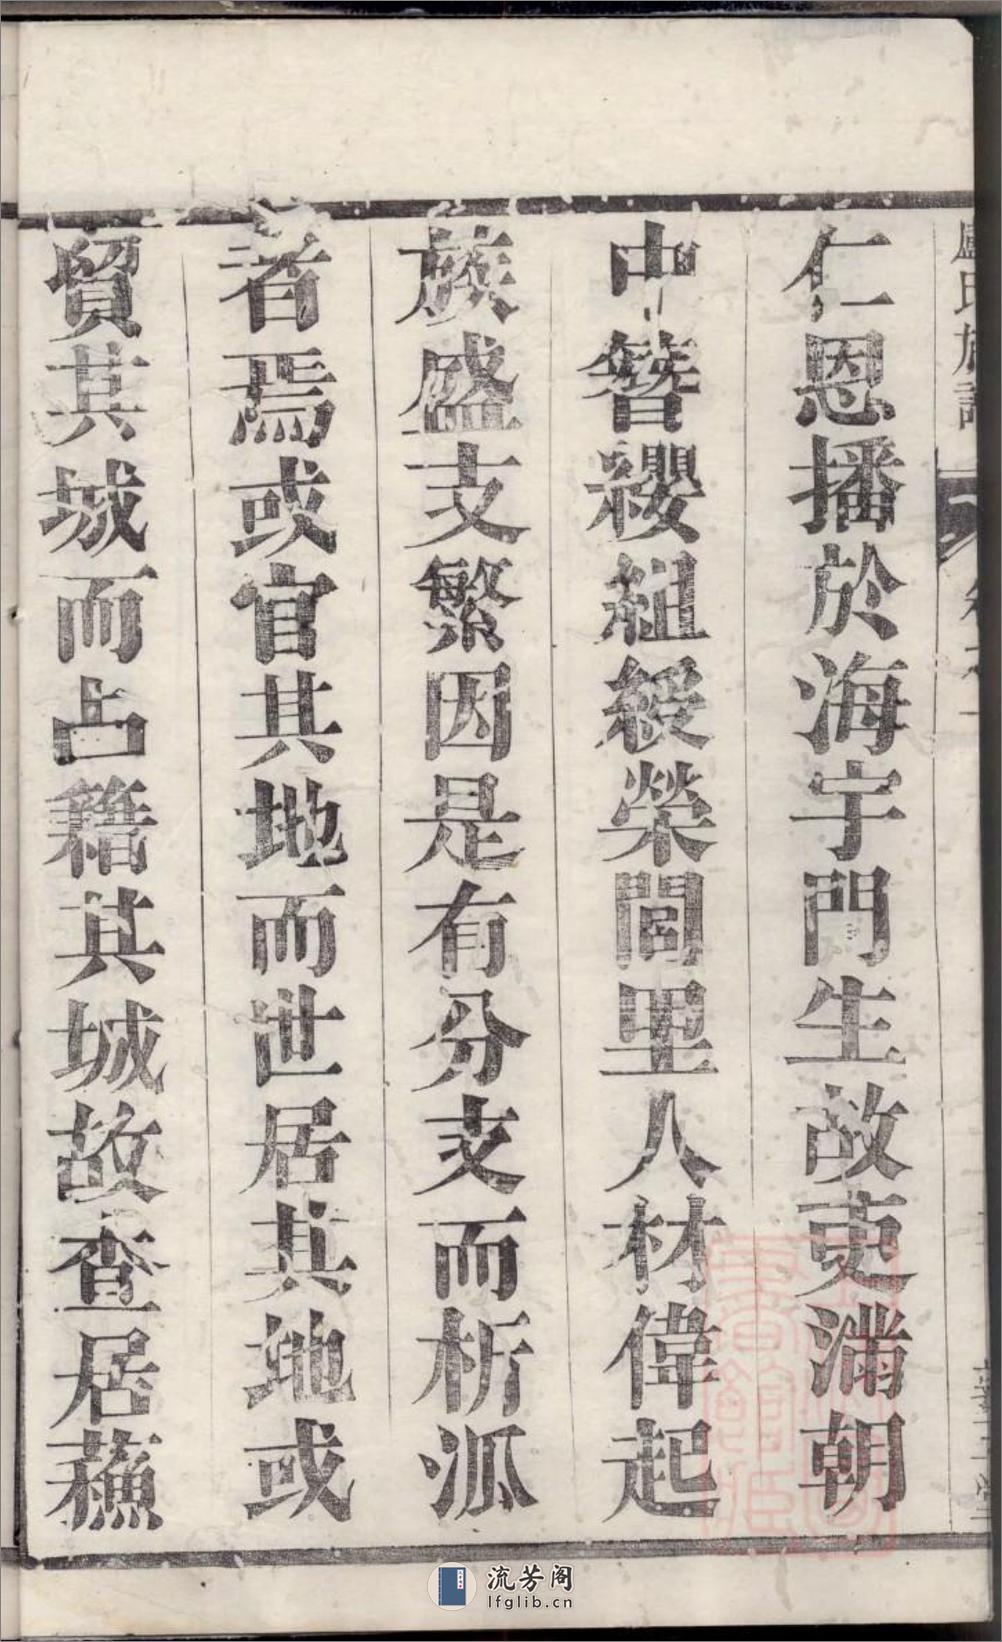 盧氏族譜
仁恩播於海宇門生故吏滿朝
中簪纓組綬榮閭里人材偉起
族盛支繁因是有分支而析派
者焉或官其地而世居其地或
貿其城而占籍其城故查居蘇
流芳阁
lfglib.cn